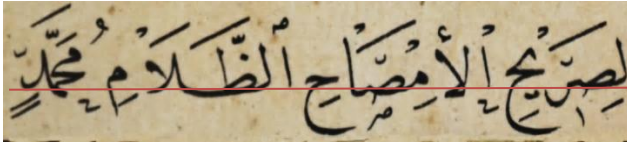 لِصَرِيْحِ الأَمِصْبَاحِ الظَّلَامِ مُحَمَّدٍ